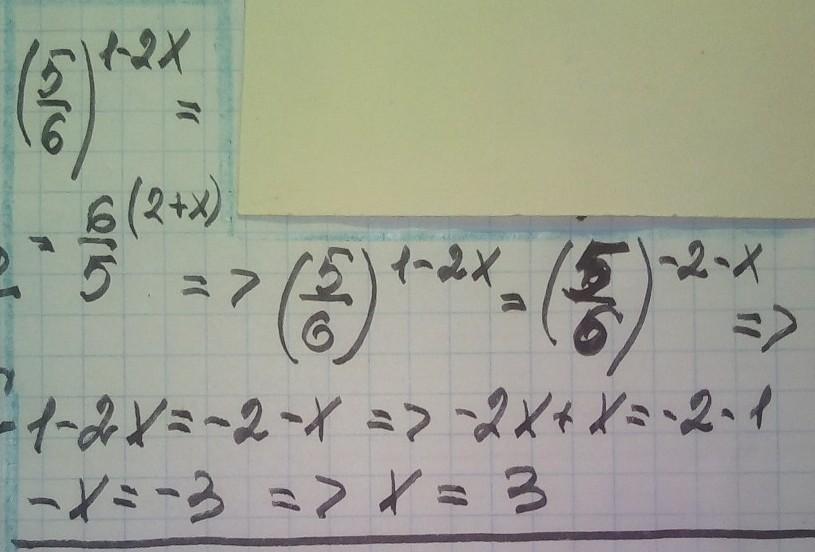 (5/6)^1-2x =
= 6/5^(2+x) => (5/6)^1-2x = (5/6)^-2-x =>
1-2x=-2-x => -2x+x=-2-1
-x=-3 => x=3